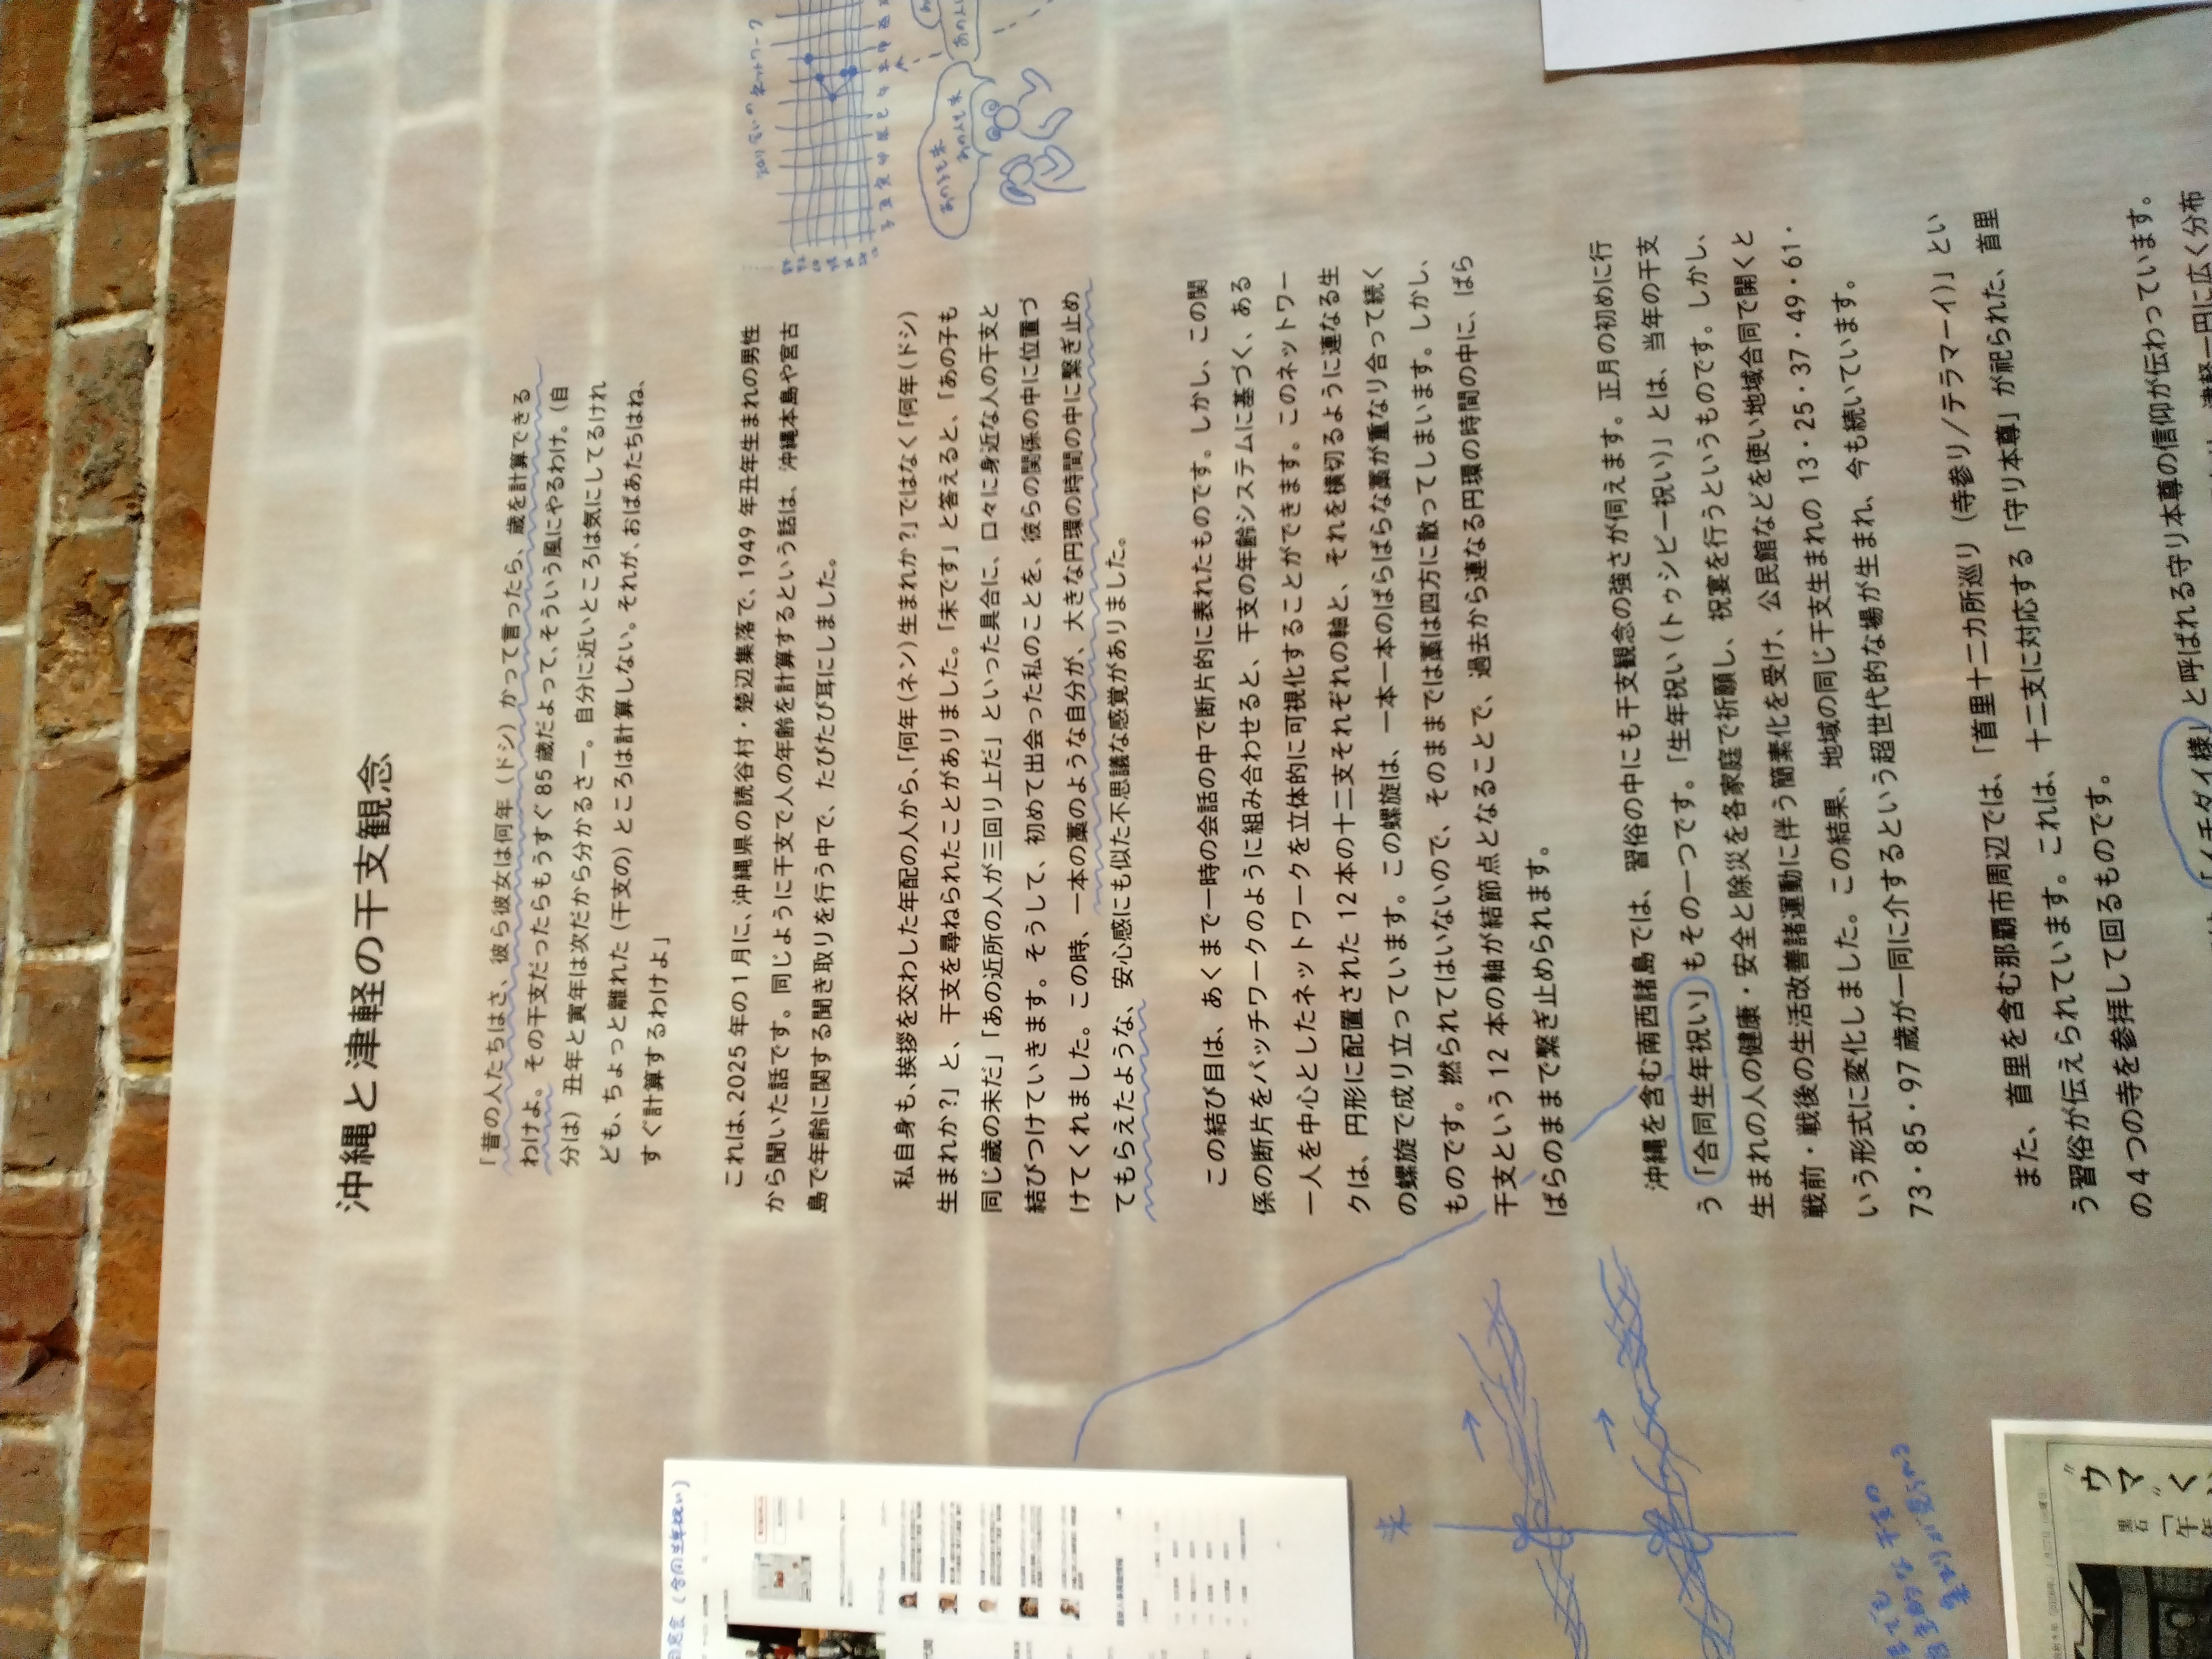 沖縄と津軽の干支観念
「昔の人たちはさ、彼ら彼女は何年（ドシ）かって言ったら、歳を計算できる
わけよ。その干支だったらもうすぐ85歳だよって、そういう風にやるわけ。（自
分は）丑年と寅年は次だから分かるさー。自分に近いところは気にしてるけれ
ども、ちょっと離れた（干支の）ところは計算しない。それが、おばあたちはね、
すぐ計算するわけよ」
これは、2025年の1月に、沖縄県の読谷村・楚辺集落で、1949年丑年生まれの男性
から聞いた話です。同じように干支で人の年齢を計算するという話は、沖縄本島や宮古
島で年齢に関する聞き取りを行う中で、たびたび耳にしました。
私自身も、挨拶を交わした年配の人から、「何年（ネン）生まれか？」ではなく「何年（ドシ）
生まれか？」と、干支を尋ねられたことがありました。「未です」と答えると、「あの子も
同じ歳の未だ」「あの近所の人が三回り上だ」といった具合に、口々に身近な人の干支と
結びつけていきます。そうして、初めて出会った私のことを、彼らの関係の中に位置づ
けてくれました。この時、一本の藁のような自分が、大きな円環の時間の中に繋ぎ止め
てもらえたような、安心感にも似た不思議な感覚がありました。
この結び目は、あくまで一時の会話の中で断片的に表れたものです。しかし、この関
係の断片をパッチワークのように組み合わせると、干支の年齢システムに基づく、ある
一人を中心としたネットワークを立体的に可視化することができます。このネットワー
クは、円形に配置された12本の十二支それぞれの軸と、それを横切るように連なる生
の螺旋で成り立っています。この螺旋は、一本一本のばらばらな藁が重なり合って続く
ものです。撚られてはいないので、そのままでは藁は四方に散ってしまいます。しかし、
干支という12本の軸が結節点となることで、過去から連なる円環の時間の中に、ばら
ばらのままで繋ぎ止められます。
沖縄を含む南西諸島では、習俗の中にも干支観念の強さが伺えます。正月の初めに行
う「合同生年祝い」もその一つです。「生年祝い（トゥシビー祝い）」とは、当年の干支
生まれの人の健康・安全と除災を各家庭で祈願し、祝宴を行うというものです。しかし、
戦前・戦後の生活改善諸運動に伴う簡素化を受け、公民館などを使い地域合同で開くと
いう形式に変化しました。この結果、地域の同じ干支生まれの13・25・37・49・61・
73・85・97歳が一同に介するという超世代的な場が生まれ、今も続いています。
また、首里を含む那覇市周辺では、「首里十二カ所巡り（寺参り／テラマーイ）」とい
う習俗が伝えられています。これは、十二支に対応する「守り本尊」が祀られた、首里
の4つの寺を参拝して回るものです。
「イチダイ様」と呼ばれる守り本尊の信仰が伝わっています。
津軽一円に広く分布
未
（合同生年祝い）
ネットワーク
"ウマ"く
黒石
「午年